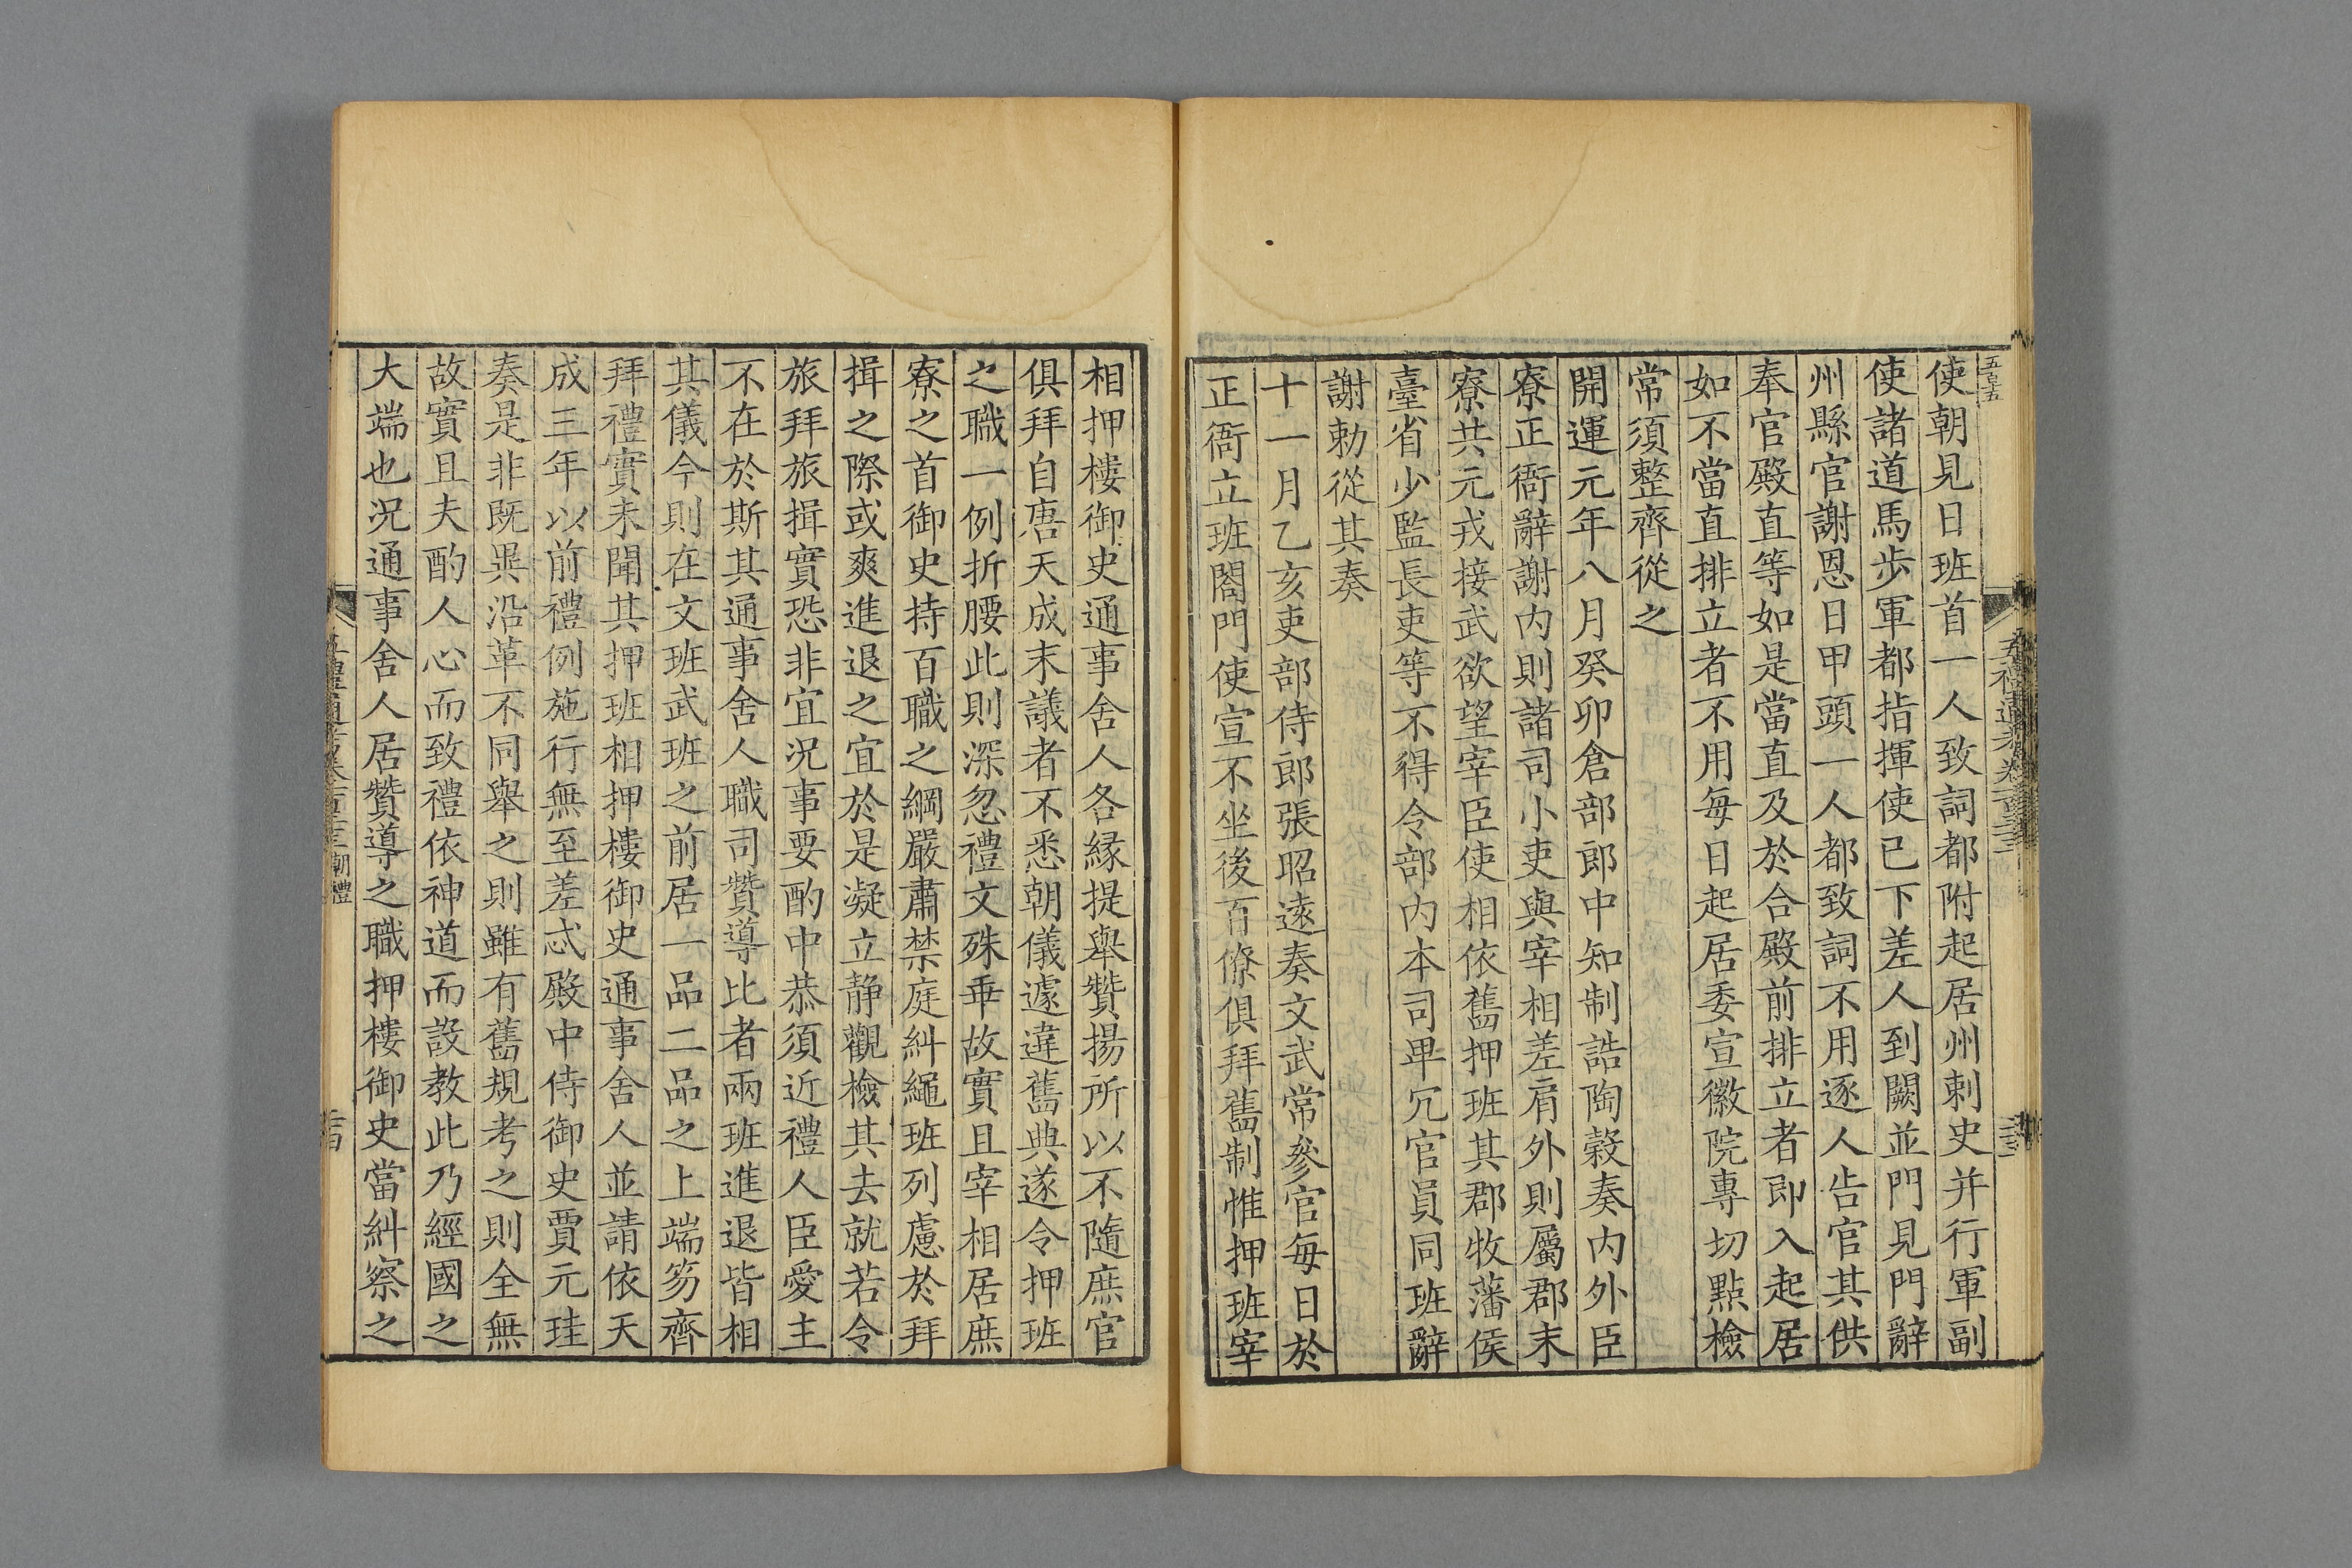 五百十五
使朝見日班首一人致詞都附起居州刺史并行軍副
使諸道馬歩軍都指揮使已下差人到闕並門見門辭
州縣官謝恩日甲頭一人都致詞不用逐人告官其供
奉官殿直等如是當直及於合殿前排立者即入起居
如不當直排立者不用每日起居委宣徽院專切點檢
常須整齊從之
開運元年八月癸卯倉部郎中知制誥陶穀奏内外臣
寮正衙辭謝内則諸司小吏與宰相差肩外則屬郡末
寮共元戎接武欲望宰臣使相依舊押班其郡牧藩侯
臺省少監長吏等不得令部内本司卑冗官員同班辭
謝勅從其奏
十一月乙亥吏部侍郎張昭遠奏文武常參官每日於
正衙立班閤門使宣不坐後百僚俱拜舊制惟押班宰
相押樓御史通事舍人各緣提舉贊揚所以不隨庶官
俱拜自唐天成末議者不悉朝儀遽違舊典遂令押班
之職一例折腰此則深忽禮文殊乖故實且宰相居庶
寮之首御史持百職之綱嚴肅禁庭糾繩班列慮於拜
揖之際或爽進退之宜於是凝立静觀檢其去就若令
旅拜旅揖實恐非宜況事要酌中恭須近禮人臣愛主
不在於斯其通事舍人職司贊導比者兩班進退皆相
其儀今則在文班武班之前居一品二品之上端笏齊
拜禮實未聞其押班相押樓御史通事舍人並請依天
成三年以前禮例施行無至差忒殿中侍御史賈元珪
奏是非既異沿革不同舉之則雖有舊規考之則全無
故實且夫酌人心而致禮依神道而設教此乃經國之
大端也況通事舍人居贊導之職押樓御史當糾察之
朝禮